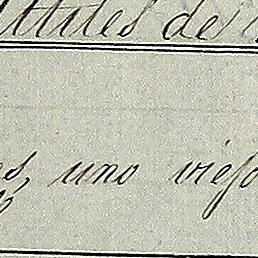 Utiles de
es, uno viejo